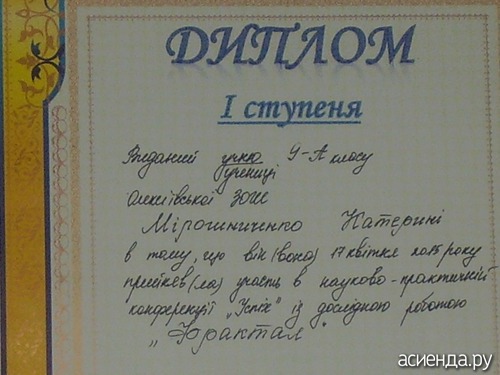 ДИПЛОМ
І ступеня
Виданий учню 9-А класу
учениці
Олексіївської ЗОШ
Мірошниченко Катерині
в тому, що він (вона) 17 квітня 2015 року
прийняв (ла) участь в науково-практичній
конференції „Успіх" із дослідною роботою
„Фрактал".
асиенда.ру